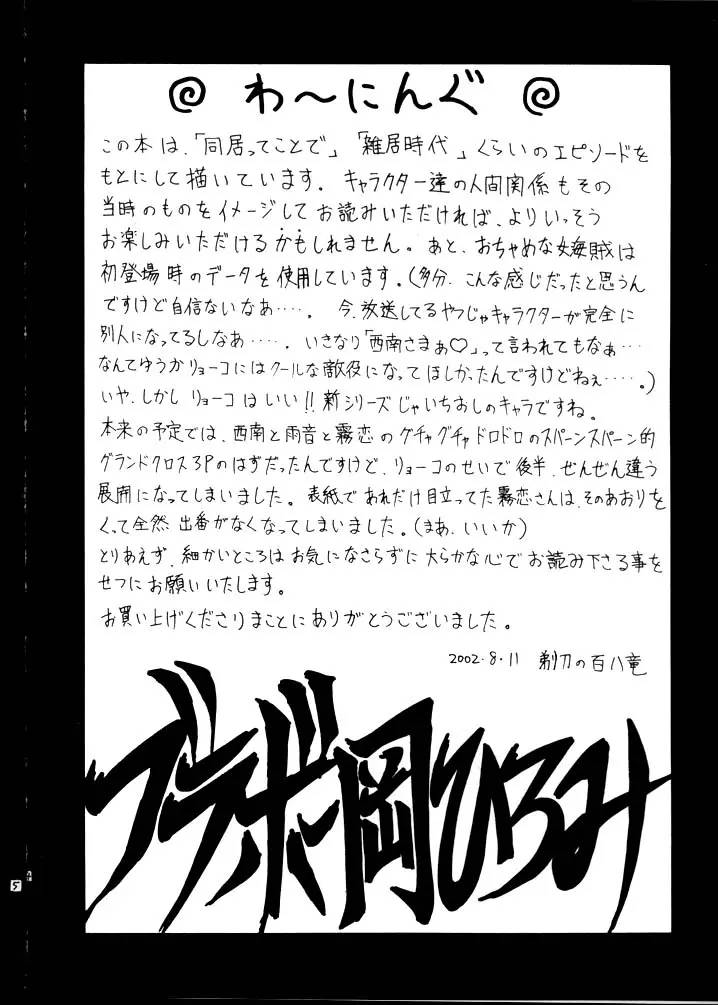 わ〜にんぐ
この本は、「同居ってことで」「雑居時代」くらいのエピソードを
もとにして描いています. キャラクター達の人間関係もその
当時のものをイメージしてお読みいただければ、よりいっそう
お楽しみいただけるかもしれません。あと、おちゃめな女海賊は
初登場時のデータを使用しています。(多分、こんな感じだったと思うん
ですけど自信ないなあ‥‥. 今、放送してるやつじゃキャラクターが完全に
別人になってるしなぁ‥‥. いきなり「西南さまぁ♡」って言われてもなぁ…
なんてゆうかリョーコにはクールな敵役になってほしかったんですけどねぇ‥‥.)
いや、しかしリョーコはいい!!新シリーズじゃいちおしのキャラですね.
本来の予定では、西南と雨音と霧恋のグチャグチャドロドロのスパーンスパーン的
グランドクロス3Pのはずだったんですけど、リョーコのせいで後半、ぜんぜん違う
展開になってしまいました。表紙であれだけ目立ってた霧恋さんは、そのあおりを
くって全然出番がなくなってしまいました。(まぁ、いいか)
とりあえず、細かいところはお気になさらずに大らかな心でお読み下さる事を
せつにお願いいたします。
お買い上げくださりまことにありがとうございました。
2002.8.11 剃刀の百八竜
ブラボー岡ひろみ
5